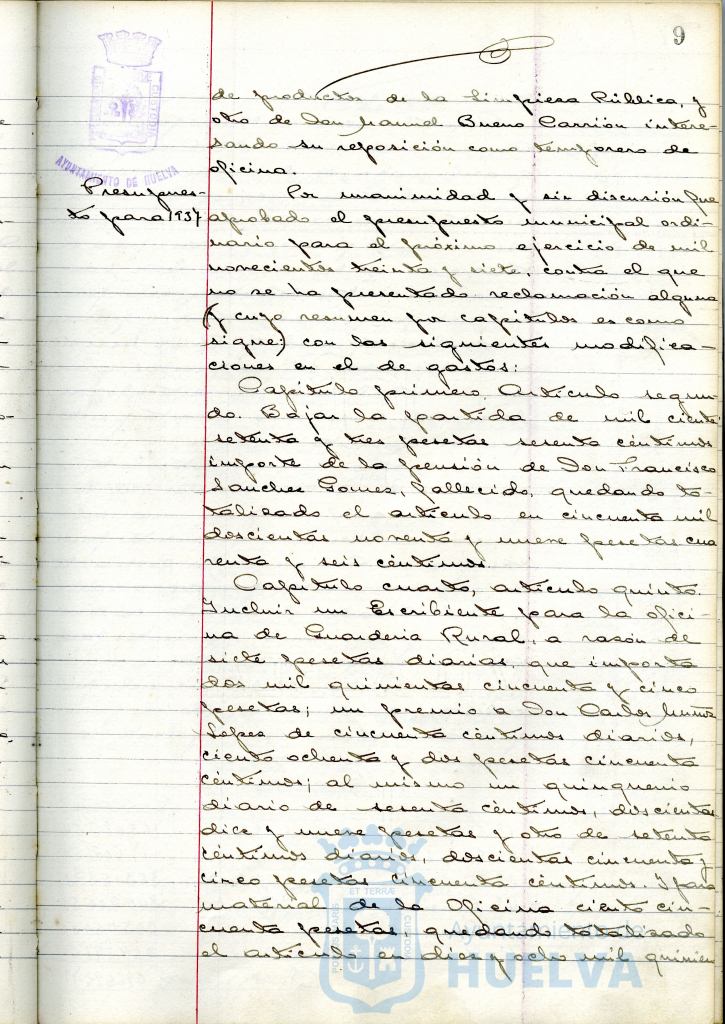 9
AYUNTAMIENTO DE HUELVA
de productos de la Limpieza Pública, y
otro de Don Manuel Bueno Carrión intere-
sando su reposición como temporero de
oficina.
Presupues-
to para 1937
Por unanimidad y sin discusión fue
aprobado el presupuesto municipal ordi-
nario para el próximo ejercicio de mil
novecientos treinta y siete, contra el que
no se ha presentado reclamación alguna
(y cuyo resumen por capítulos es como
sigue:) con las siguientes modifica-
ciones en el de gastos:
Capítulo primero. Artículo segun-
do. Bajar la partida de mil ciento
setenta y tres pesetas sesenta céntimos
importe de la pensión de Don Francisco
Sanchez Gomez, fallecido, quedando to-
talizado el artículo en cincuenta mil
doscientas noventa y nueve pesetas cua
renta y seis céntimos.
Capítulo cuarto, artículo quinto.
Incluir un Escribiente para la ofici-
na de Guarderia Rural, a razón de
siete pesetas diarias, que importa
dos mil quinientas cincuenta y cinco
pesetas; un premio a Don Carlos Muñoz
López de cincuenta céntimos diarios,
ciento ochenta y dos pesetas cincuenta
céntimos; al mismo un quinquenio
diario de sesenta céntimos, doscientas
diez y nueve pesetas y otro de setenta
céntimos diarios, doscientas cincuenta y
cinco pesetas cincuenta céntimos. Y para
material de la Oficina ciento cin-
cuenta pesetas, quedando totalizado
el artículo en diez y ocho mil quinien
Ayuntamiento de
HUELVA